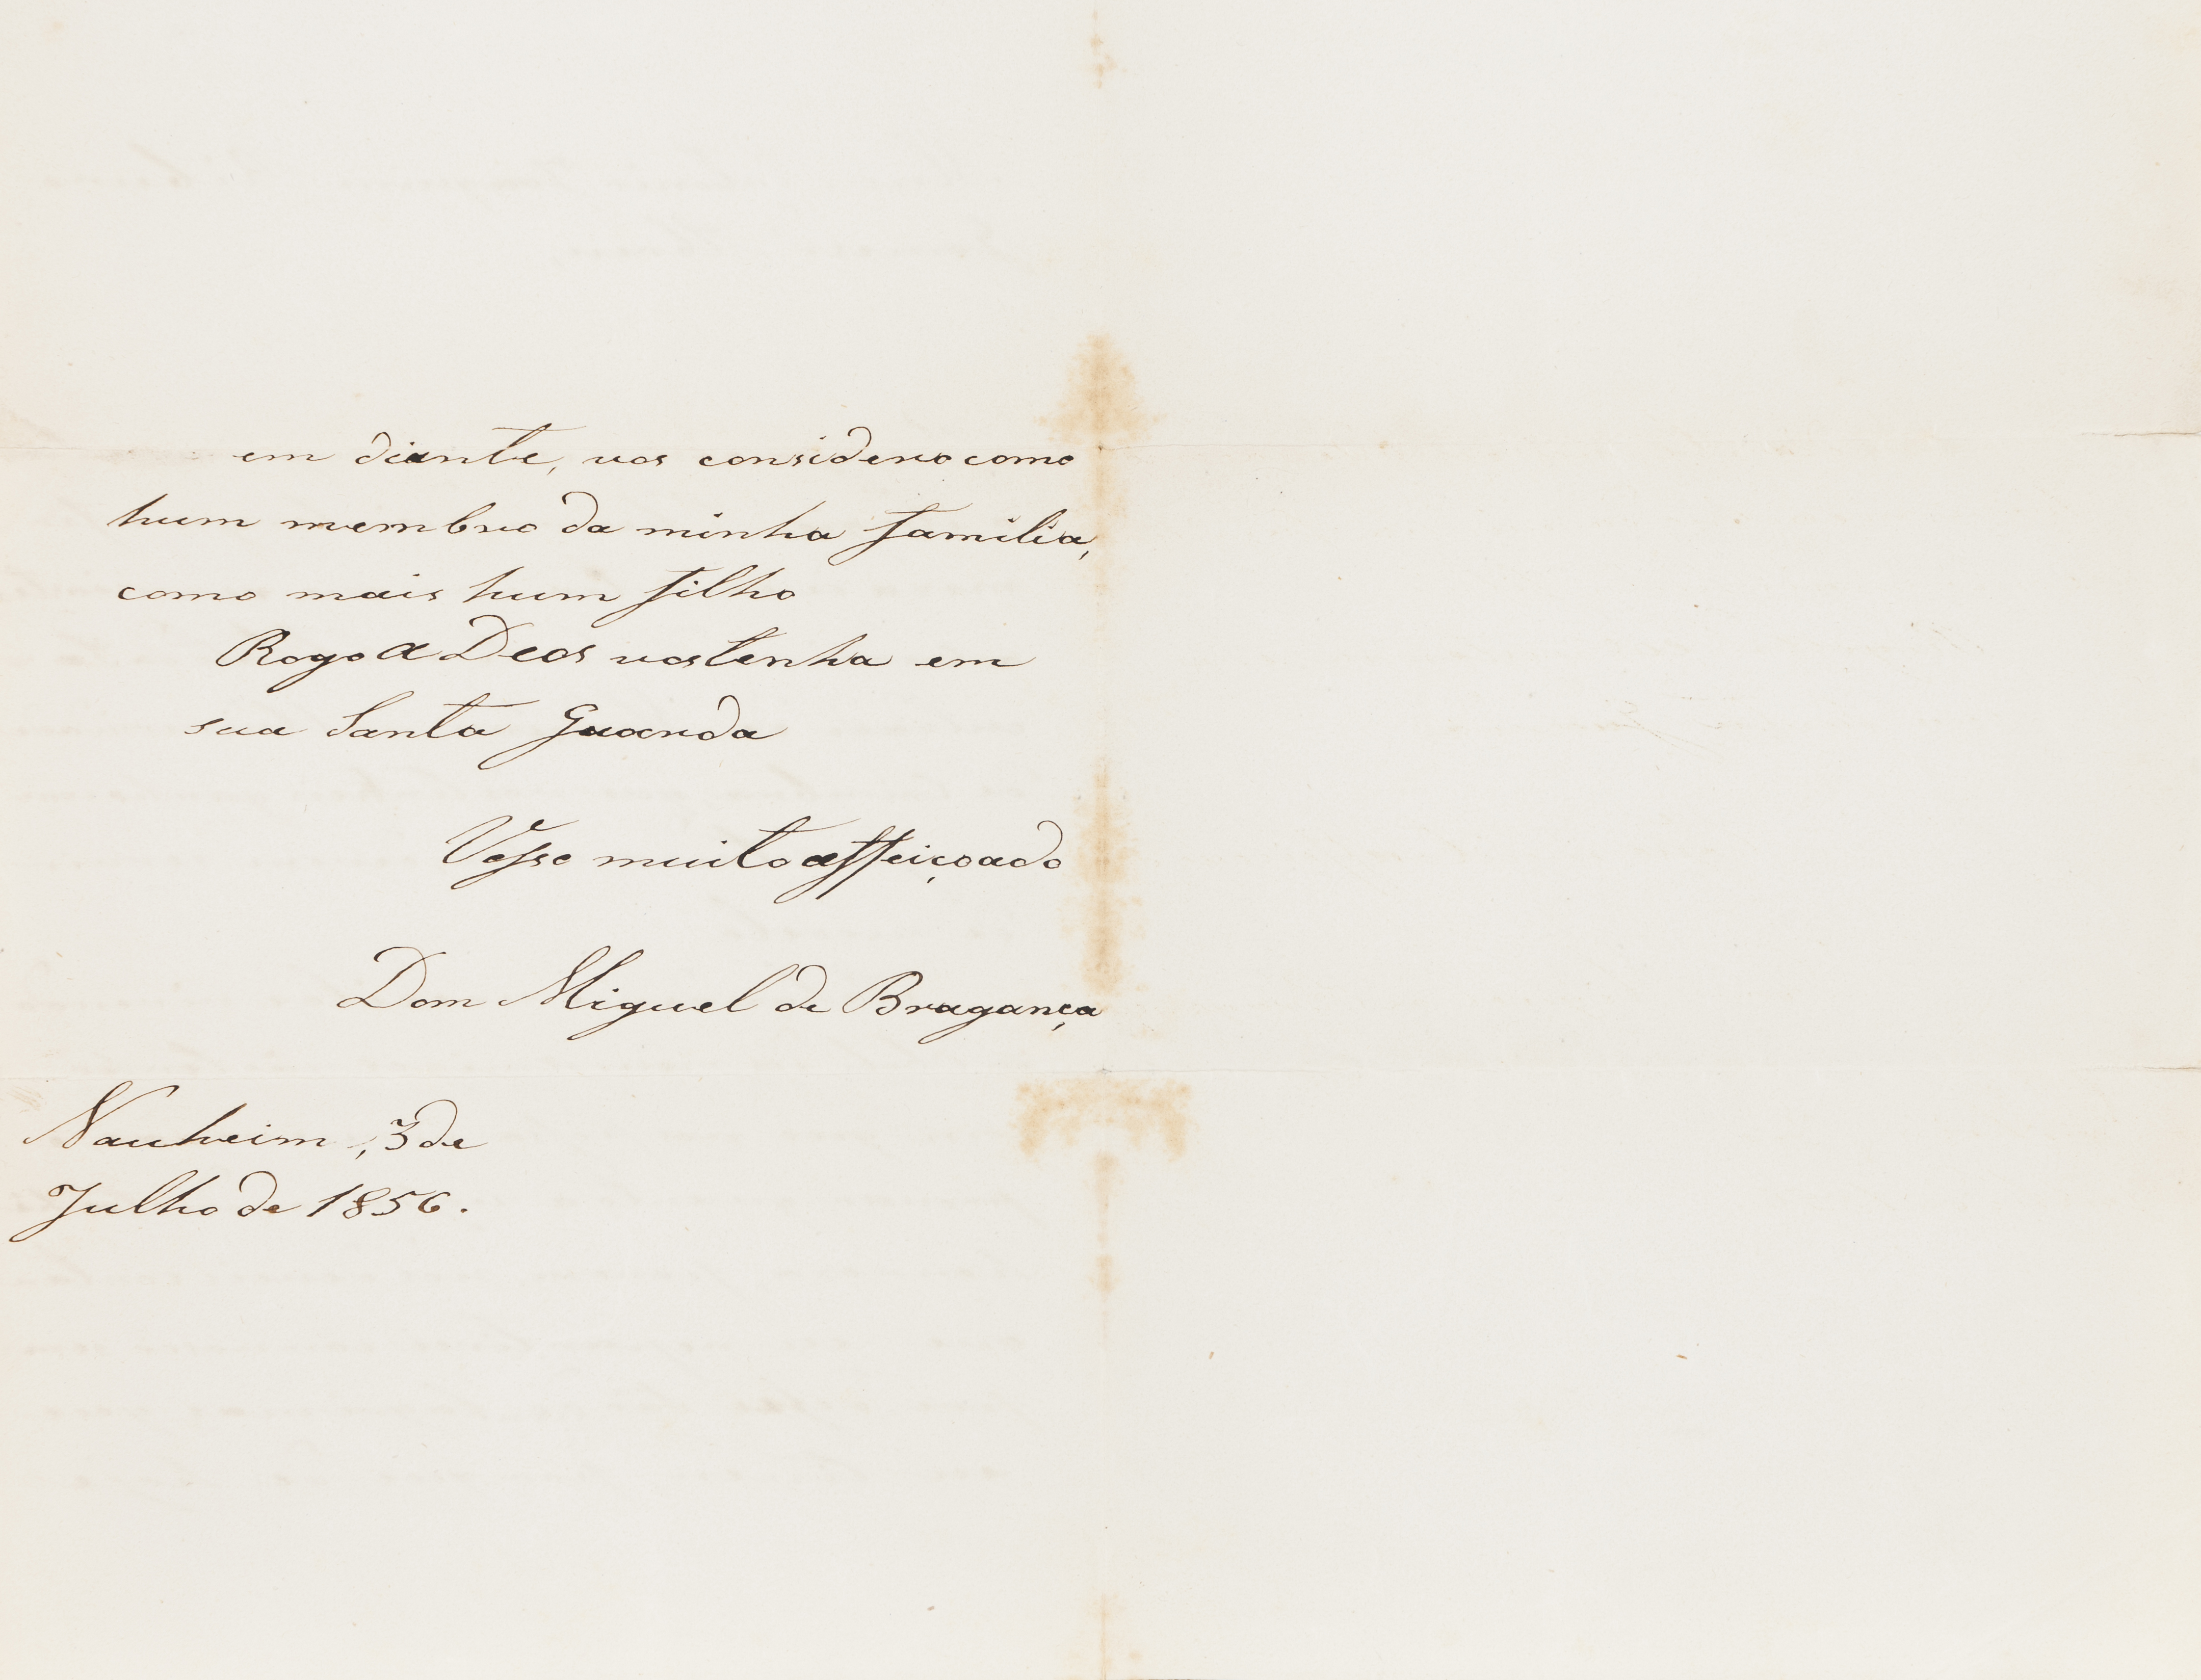 em diante, vos considero como
hum membro da minha familia,
como mais hum filho
Rogo a Deos vos tenha em
sua Santa Guarda
Vosso muito affeiçoado
Dom Miguel de Bragança
Nauheim, 3 de
Julho de 1856.